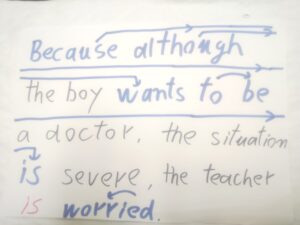 Because although
the boy wants to be
a doctor, the situation
is severe, the teacher
is worried.